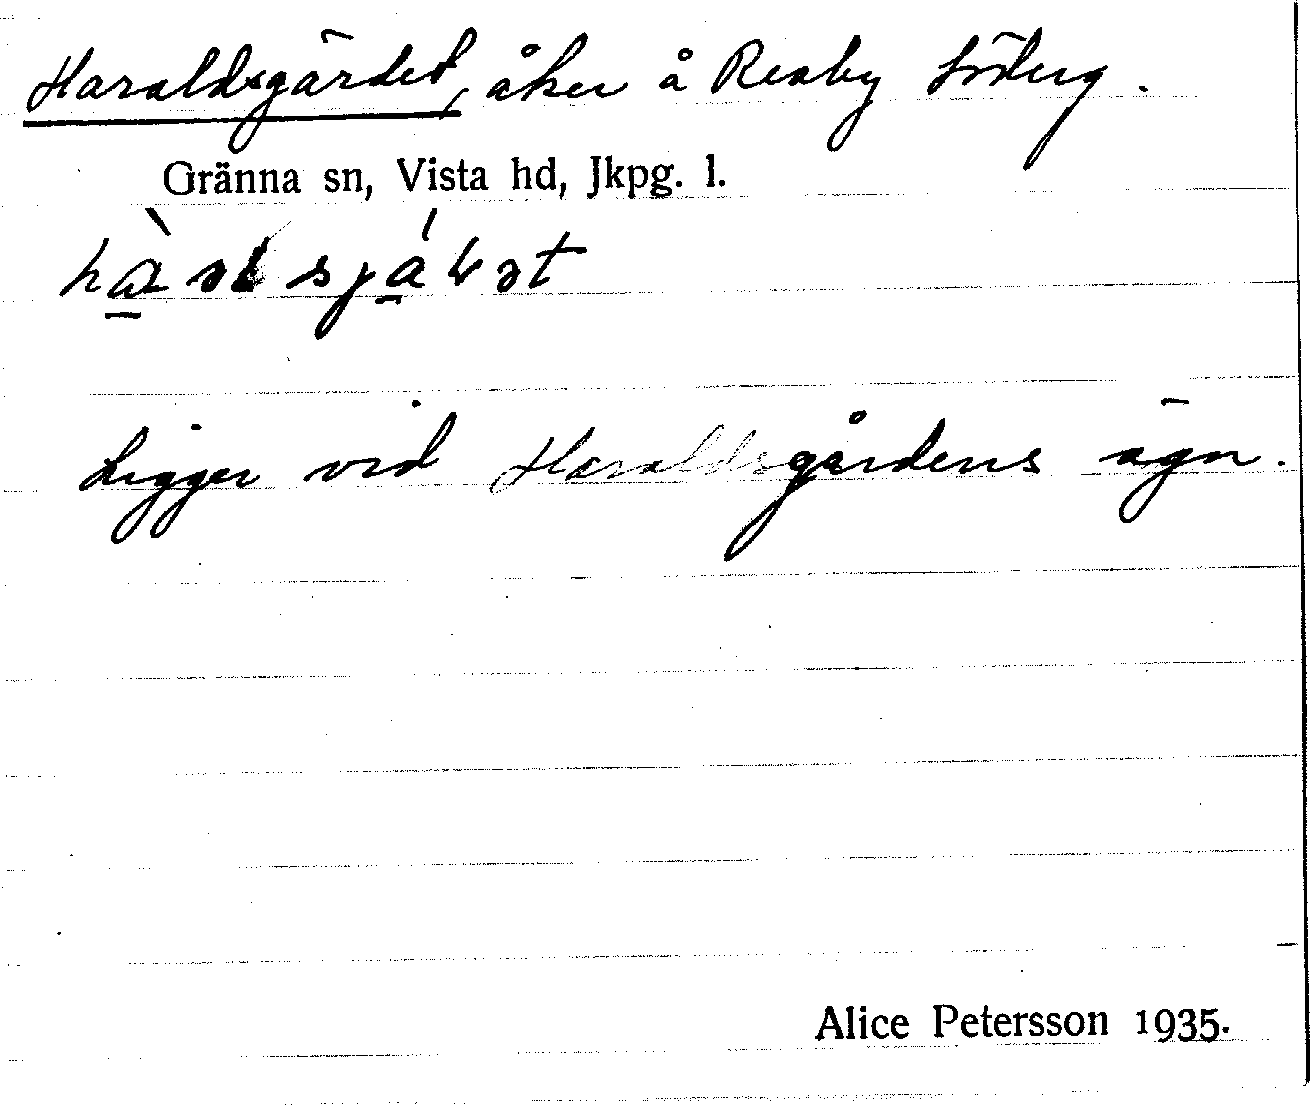 Haraldsgärdet, åker å Reaby Söderg.
Gränna sn, Vista hd, Jkpg. l.
Ligger vid Haraldsgårdens ägor.
Alice Petersson 1935.